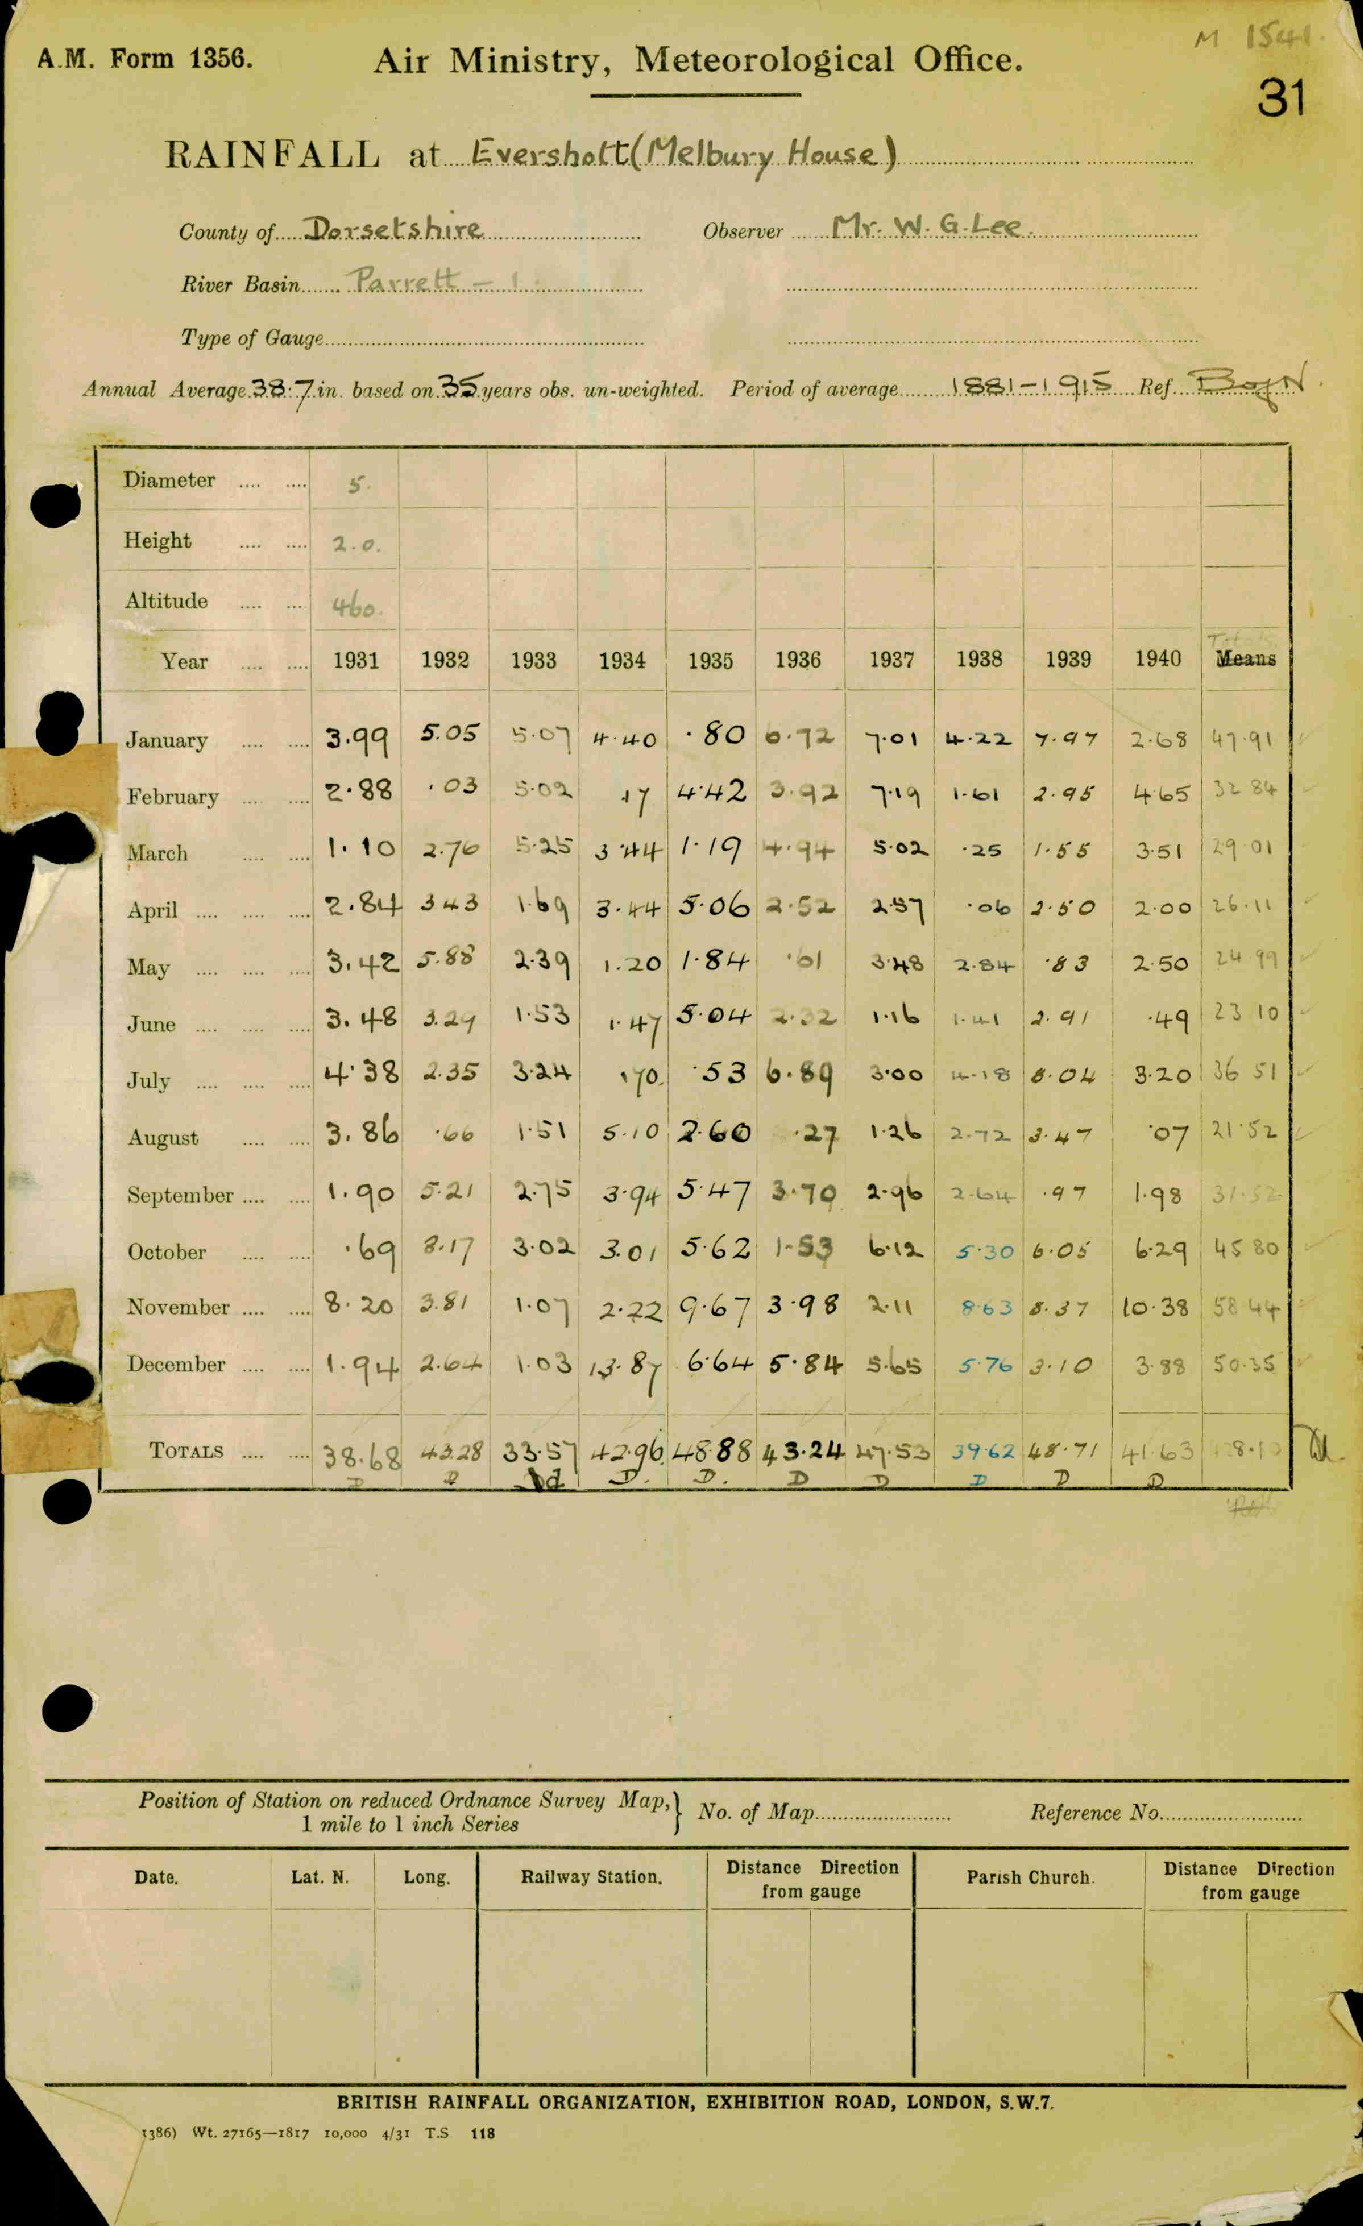 M 1541.
A.M. Form 1356. Air Ministry, Meteorological Office.
31
RAINFALL at Evershott (Melbury House)
County of Dorsetshire Observer Mr. W. G. Lee.
River Basin Parrett - 1
Type of Gauge
Annual Average 38.7 in. based on 35 years obs. un-weighted. Period of average 1881-1915 Ref. B of N.
Diameter 5.
Height 2.0.
Altitude 460.
Totals
Year 1931 1932 1933 1934 1935 1936 1937 1938 1939 1940 Means
January 3.99 5.05 5.07 4.40 .80 6.72 7.01 4.22 7.97 2.68 47.91
February 2.88 .03 5.02 .17 4.42 3.92 7.19 1.61 2.95 4.65 32 84
March 1.10 2.76 5.25 3.44 1.19 4.94 5.02 .25 1.55 3.51 29.01
April 2.84 3 43 1.69 3.44 5.06 2.52 2.57 .06 2.50 2.00 26.11
May 3.42 5.88 2.39 1.20 1.84 .61 3.48 2.84 .83 2.50 24 99
June 3.48 3.29 1.53 1.47 5.04 2.32 1.16 1.41 2.91 .49 23 10
July 4.38 2.35 3.24 .70 .53 6.89 3.00 4.18 8.04 3.20 36 51
August 3.86 .66 1.51 5.10 2.60 .27 1.26 2.72 3.47 .07 21.52
September 1.90 5.21 2.75 3.94 5.47 3.70 2.96 2.64 .97 1.98 31.52
October .69 8.17 3.02 3.01 5.62 1.53 6.12 5.30 6.05 6.29 45 80
November 8.20 3.81 1.07 2.22 9.67 3.98 2.11 8.63 8.37 10.38 58 44
December 1.94 2.64 1.03 13.87 6.64 5.84 5.65 5.76 3.10 3.88 50.35
TOTALS 38.68 43.28 33.57 42.96 48.88 43.24 47.53 39.62 48.71 41.63 428.10
D D bd D. D. D D D D D
Position of Station on reduced Ordnance Survey Map,} No. of Map Reference No.
1 mile to 1 inch Series
Date. Lat. N. Long. Railway Station. Distance Direction from gauge Parish Church. Distance Direction from gauge
BRITISH RAINFALL ORGANIZATION, EXHIBITION ROAD, LONDON, S.W.7.
1386) Wt. 27165—1817 10,000 4/31 T.S 118